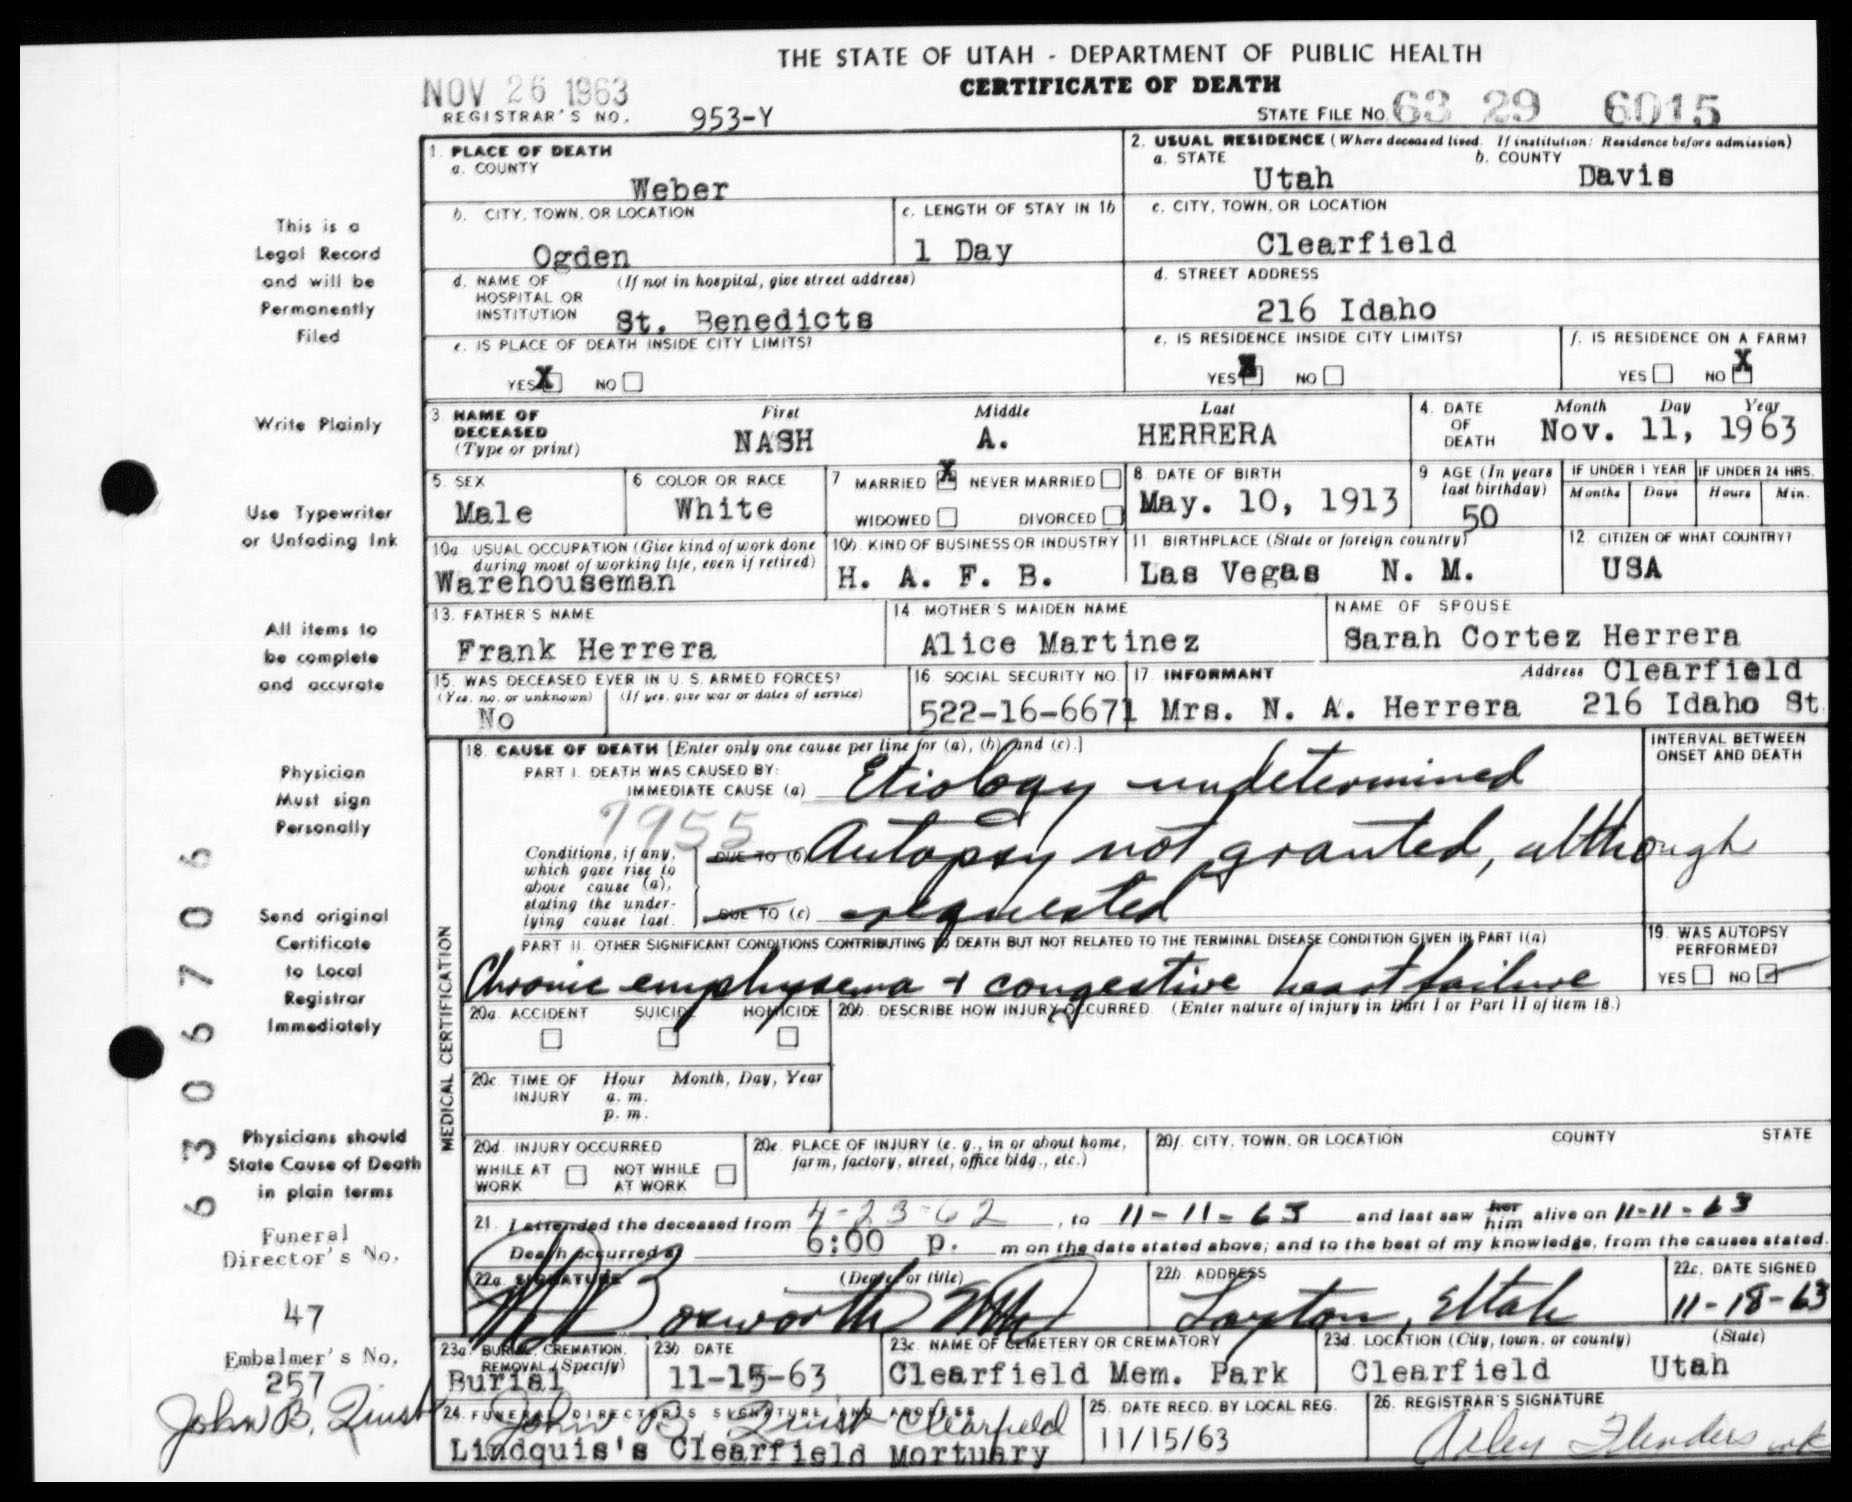 THE STATE OF UTAH - DEPARTMENT OF PUBLIC HEALTH
CERTIFICATE OF DEATH
NOV 26 1963
REGISTRAR'S NO. 953-Y
STATE FILE NO. 63 29 6015
1. PLACE OF DEATH
a. COUNTY
Weber
2. USUAL RESIDENCE (Where deceased lived. If institution: Residence before admission)
a. STATE b. COUNTY
Utah Davis
b. CITY, TOWN, OR LOCATION
Ogden
c. LENGTH OF STAY IN 1b
1 Day
c. CITY, TOWN, OR LOCATION
Clearfield
d. NAME OF HOSPITAL OR INSTITUTION (If not in hospital, give street address)
St. Benedicts
d. STREET ADDRESS
216 Idaho
e. IS PLACE OF DEATH INSIDE CITY LIMITS?
YES X NO
e. IS RESIDENCE INSIDE CITY LIMITS?
YES X NO
f. IS RESIDENCE ON A FARM?
YES NO X
3 NAME OF DECEASED (Type or print)
First Middle Last
NASH A. HERRERA
4. DATE OF DEATH
Month Day Year
Nov. 11, 1963
5. SEX
Male
6 COLOR OR RACE
White
7 MARRIED X NEVER MARRIED
WIDOWED DIVORCED
8 DATE OF BIRTH
May. 10, 1913
9 AGE (In years last birthday)
50
IF UNDER 1 YEAR
Months Days
IF UNDER 24 HRS.
Hours Min.
10a. USUAL OCCUPATION (Give kind of work done during most of working life, even if retired)
Warehouseman
10b. KIND OF BUSINESS OR INDUSTRY
H. A. F. B.
11. BIRTHPLACE (State or foreign country)
Las Vegas N. M.
12. CITIZEN OF WHAT COUNTRY?
USA
13. FATHER'S NAME
Frank Herrera
14. MOTHER'S MAIDEN NAME
Alice Martinez
NAME OF SPOUSE
Sarah Cortez Herrera
15. WAS DECEASED EVER IN U. S. ARMED FORCES?
(Yes, no, or unknown) (If yes, give war or dates of service)
No
16. SOCIAL SECURITY NO.
522-16-6671
17. INFORMANT Address
Clearfield
Mrs. N. A. Herrera 216 Idaho St
MEDICAL CERTIFICATION
18. CAUSE OF DEATH [Enter only one cause per line for (a), (b), and (c).]
PART I. DEATH WAS CAUSED BY:
IMMEDIATE CAUSE (a) Etiology undetermined
7955
Conditions, if any, which gave rise to above cause (a), stating the underlying cause last.
DUE TO (b) Autopsy not granted, although
DUE TO (c) requested
INTERVAL BETWEEN ONSET AND DEATH
PART II. OTHER SIGNIFICANT CONDITIONS CONTRIBUTING TO DEATH BUT NOT RELATED TO THE TERMINAL DISEASE CONDITION GIVEN IN PART I(a)
Chronic emphysema + congestive heart failure
19. WAS AUTOPSY PERFORMED?
YES NO
20a. ACCIDENT SUICIDE HOMICIDE
20b. DESCRIBE HOW INJURY OCCURRED. (Enter nature of injury in Part I or Part II of item 18.)
20c. TIME OF INJURY
Hour Month, Day, Year
a. m.
p. m.
20d. INJURY OCCURRED
WHILE AT WORK NOT WHILE AT WORK
20e. PLACE OF INJURY (e. g., in or about home, farm, factory, street, office bldg., etc.)
20f. CITY, TOWN, OR LOCATION COUNTY STATE
21. I attended the deceased from 4-23-62, to 11-11-63 and last saw her him alive on 11-11-63
Death occurred at 6:00 p. m on the date stated above; and to the best of my knowledge, from the causes stated.
22a. SIGNATURE (Degree or title)
Bosworth MD
22b. ADDRESS
Layton, Utah
22c. DATE SIGNED
11-18-63
23a. BURIAL, CREMATION, REMOVAL (Specify)
Burial
23b. DATE
11-15-63
23c. NAME OF CEMETERY OR CREMATORY
Clearfield Mem. Park
23d. LOCATION (City, town, or county) (State)
Clearfield Utah
24. FUNERAL DIRECTOR'S SIGNATURE AND ADDRESS
John B. Clearfield
Lindquis's Clearfield Mortuary
25. DATE RECD. BY LOCAL REG.
11/15/63
26. REGISTRAR'S SIGNATURE
This is a
Legal Record
and will be
Permanently
Filed
Write Plainly
Use Typewriter
or Unfading Ink
All items to
be complete
and accurate
Physician
Must sign
Personally
Send original
Certificate
to Local
Registrar
Immediately
Physicians should
State Cause of Death
in plain terms
Funeral
Director's No.
47
Embalmer's No.
257
John B.
6306706